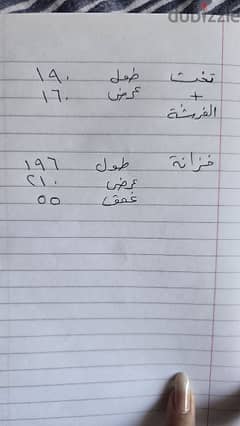 dubizzle
تخت طول ١٩٠
+ عرض ١٦٠
الفرشة
خزانة طول ١٩٦
عرض ٢١٠
غمق ٥٥